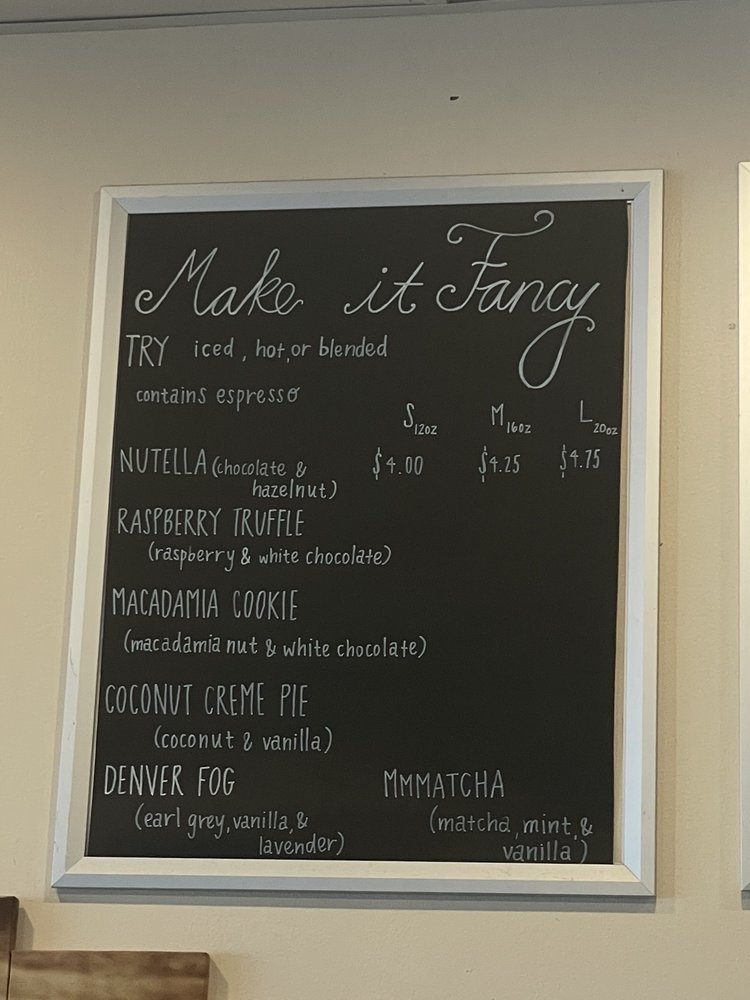 Make it Fancy
TRY iced, hot, or blended
contains espresso
S 12oz M 16oz L 20oz
NUTELLA (chocolate & $4.00 $4.25 $4.75
hazelnut)
RASPBERRY TRUFFLE
(raspberry & white chocolate)
MACADAMIA COOKIE
(macadamia nut & white chocolate)
COCONUT CREME PIE
(coconut & vanilla)
DENVER FOG MMMATCHA
(earl grey, vanilla, & (matcha, mint, &
lavender) vanilla)